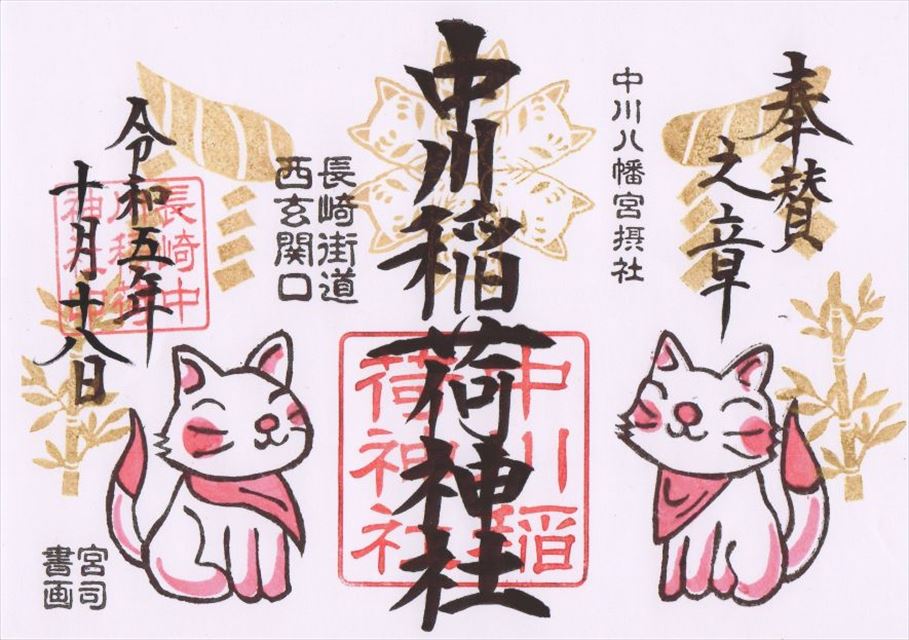 奉賛
之章
中川八幡宮摂社
中川稲荷神社
中川稲
荷神社
長崎街道
西玄関口
令和五年
十月十八日
長崎中
川稲荷
神社印
宮司
書画